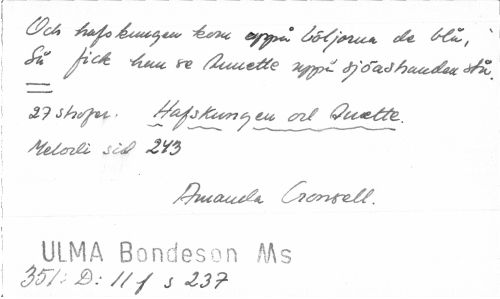 Och hafskungen kom uppå böljorna de blå,
Så fick han se Annette uppå sjöastranden stå.
27 strofer. Hafskungen och Anette.
Melodi sid 243
Amanda Cronsell.
ULMA Bondeson Ms
351: D: 11 f s 237